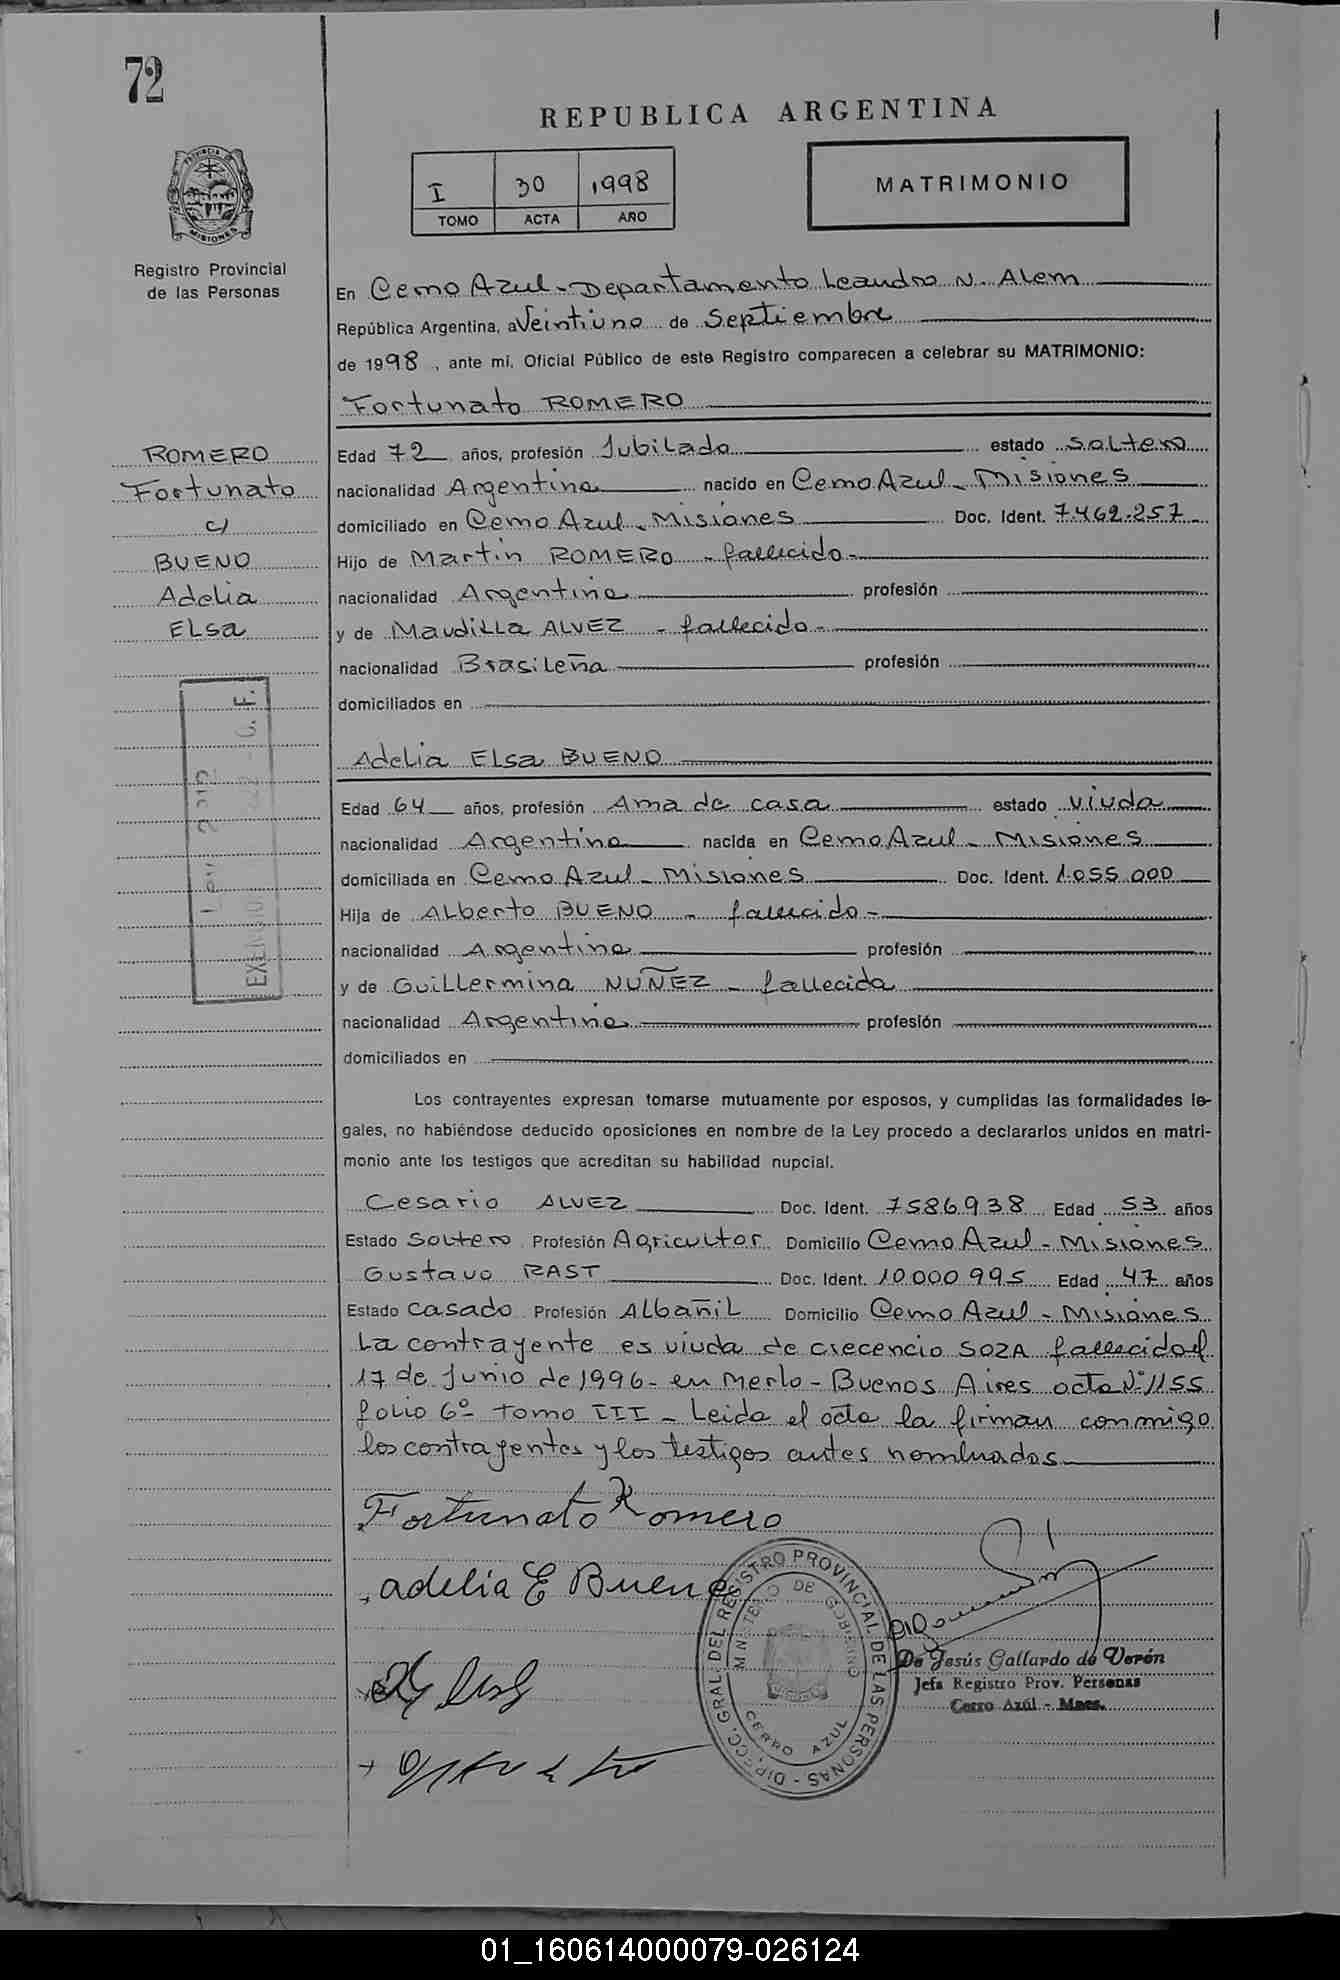 72
REPUBLICA ARGENTINA
I 30 1998
TOMO ACTA AÑO
MATRIMONIO
PROVINCIA DE MISIONES
Registro Provincial
de las Personas
En Cerro Azul - Departamento Leandro N. Alem
República Argentina, a Veintiuno de Septiembre
de 1998, ante mi, Oficial Público de este Registro comparecen a celebrar su MATRIMONIO:
Fortunato ROMERO
ROMERO
Fortunato
c/
BUENO
Adelia
ELsa
Edad 72 años, profesión Jubilado estado soltero
nacionalidad Argentina nacido en Cerro Azul - Misiones
domiciliado en Cerro Azul - Misiones Doc. Ident. 7.462.257
Hijo de Martin ROMERO - fallecido -
nacionalidad Argentina profesión
y de Maudilla ALVEZ - fallecido -
nacionalidad Brasileña profesión
domiciliados en
Adelia Elsa BUENO
Edad 64 años, profesión Ama de casa estado viuda
nacionalidad Argentina nacida en Cerro Azul - Misiones
domiciliada en Cerro Azul - Misiones Doc. Ident. 1.055.000
Hija de Alberto BUENO - fallecido -
nacionalidad Argentina profesión
y de Guillermina NUÑEZ - fallecida
nacionalidad Argentina profesión
domiciliados en
Los contrayentes expresan tomarse mutuamente por esposos, y cumplidas las formalidades le-
gales, no habiéndose deducido oposiciones en nombre de la Ley procedo a declararlos unidos en matri-
monio ante los testigos que acreditan su habilidad nupcial.
Cesario ALVEZ Doc. Ident. 7586938 Edad 53 años
Estado Soltero Profesión Agricultor Domicilio Cerro Azul - Misiones
Gustavo RAST Doc. Ident. 10000995 Edad 47 años
Estado casado Profesión Albañil Domicilio Cerro Azul - Misiones
La contrayente es viuda de Crecencio SOZA fallecido el
17 de Junio de 1996 - en Merlo - Buenos Aires acta Nº 1155
folio 6º Tomo III - Leida el acta la firman conmigo
los contrayentes y los testigos antes nombrados
Fortunato Romero
adelia E Bueno
DIRECC. GRAL. DEL REGISTRO PROVINCIAL DE LAS PERSONAS
MINISTERIO DE GOBIERNO
CERRO AZUL
De Jesús Gallardo de Verón
Jefa Registro Prov. Personas
Cerro Azúl - Mnes.
01_160614000079-026124